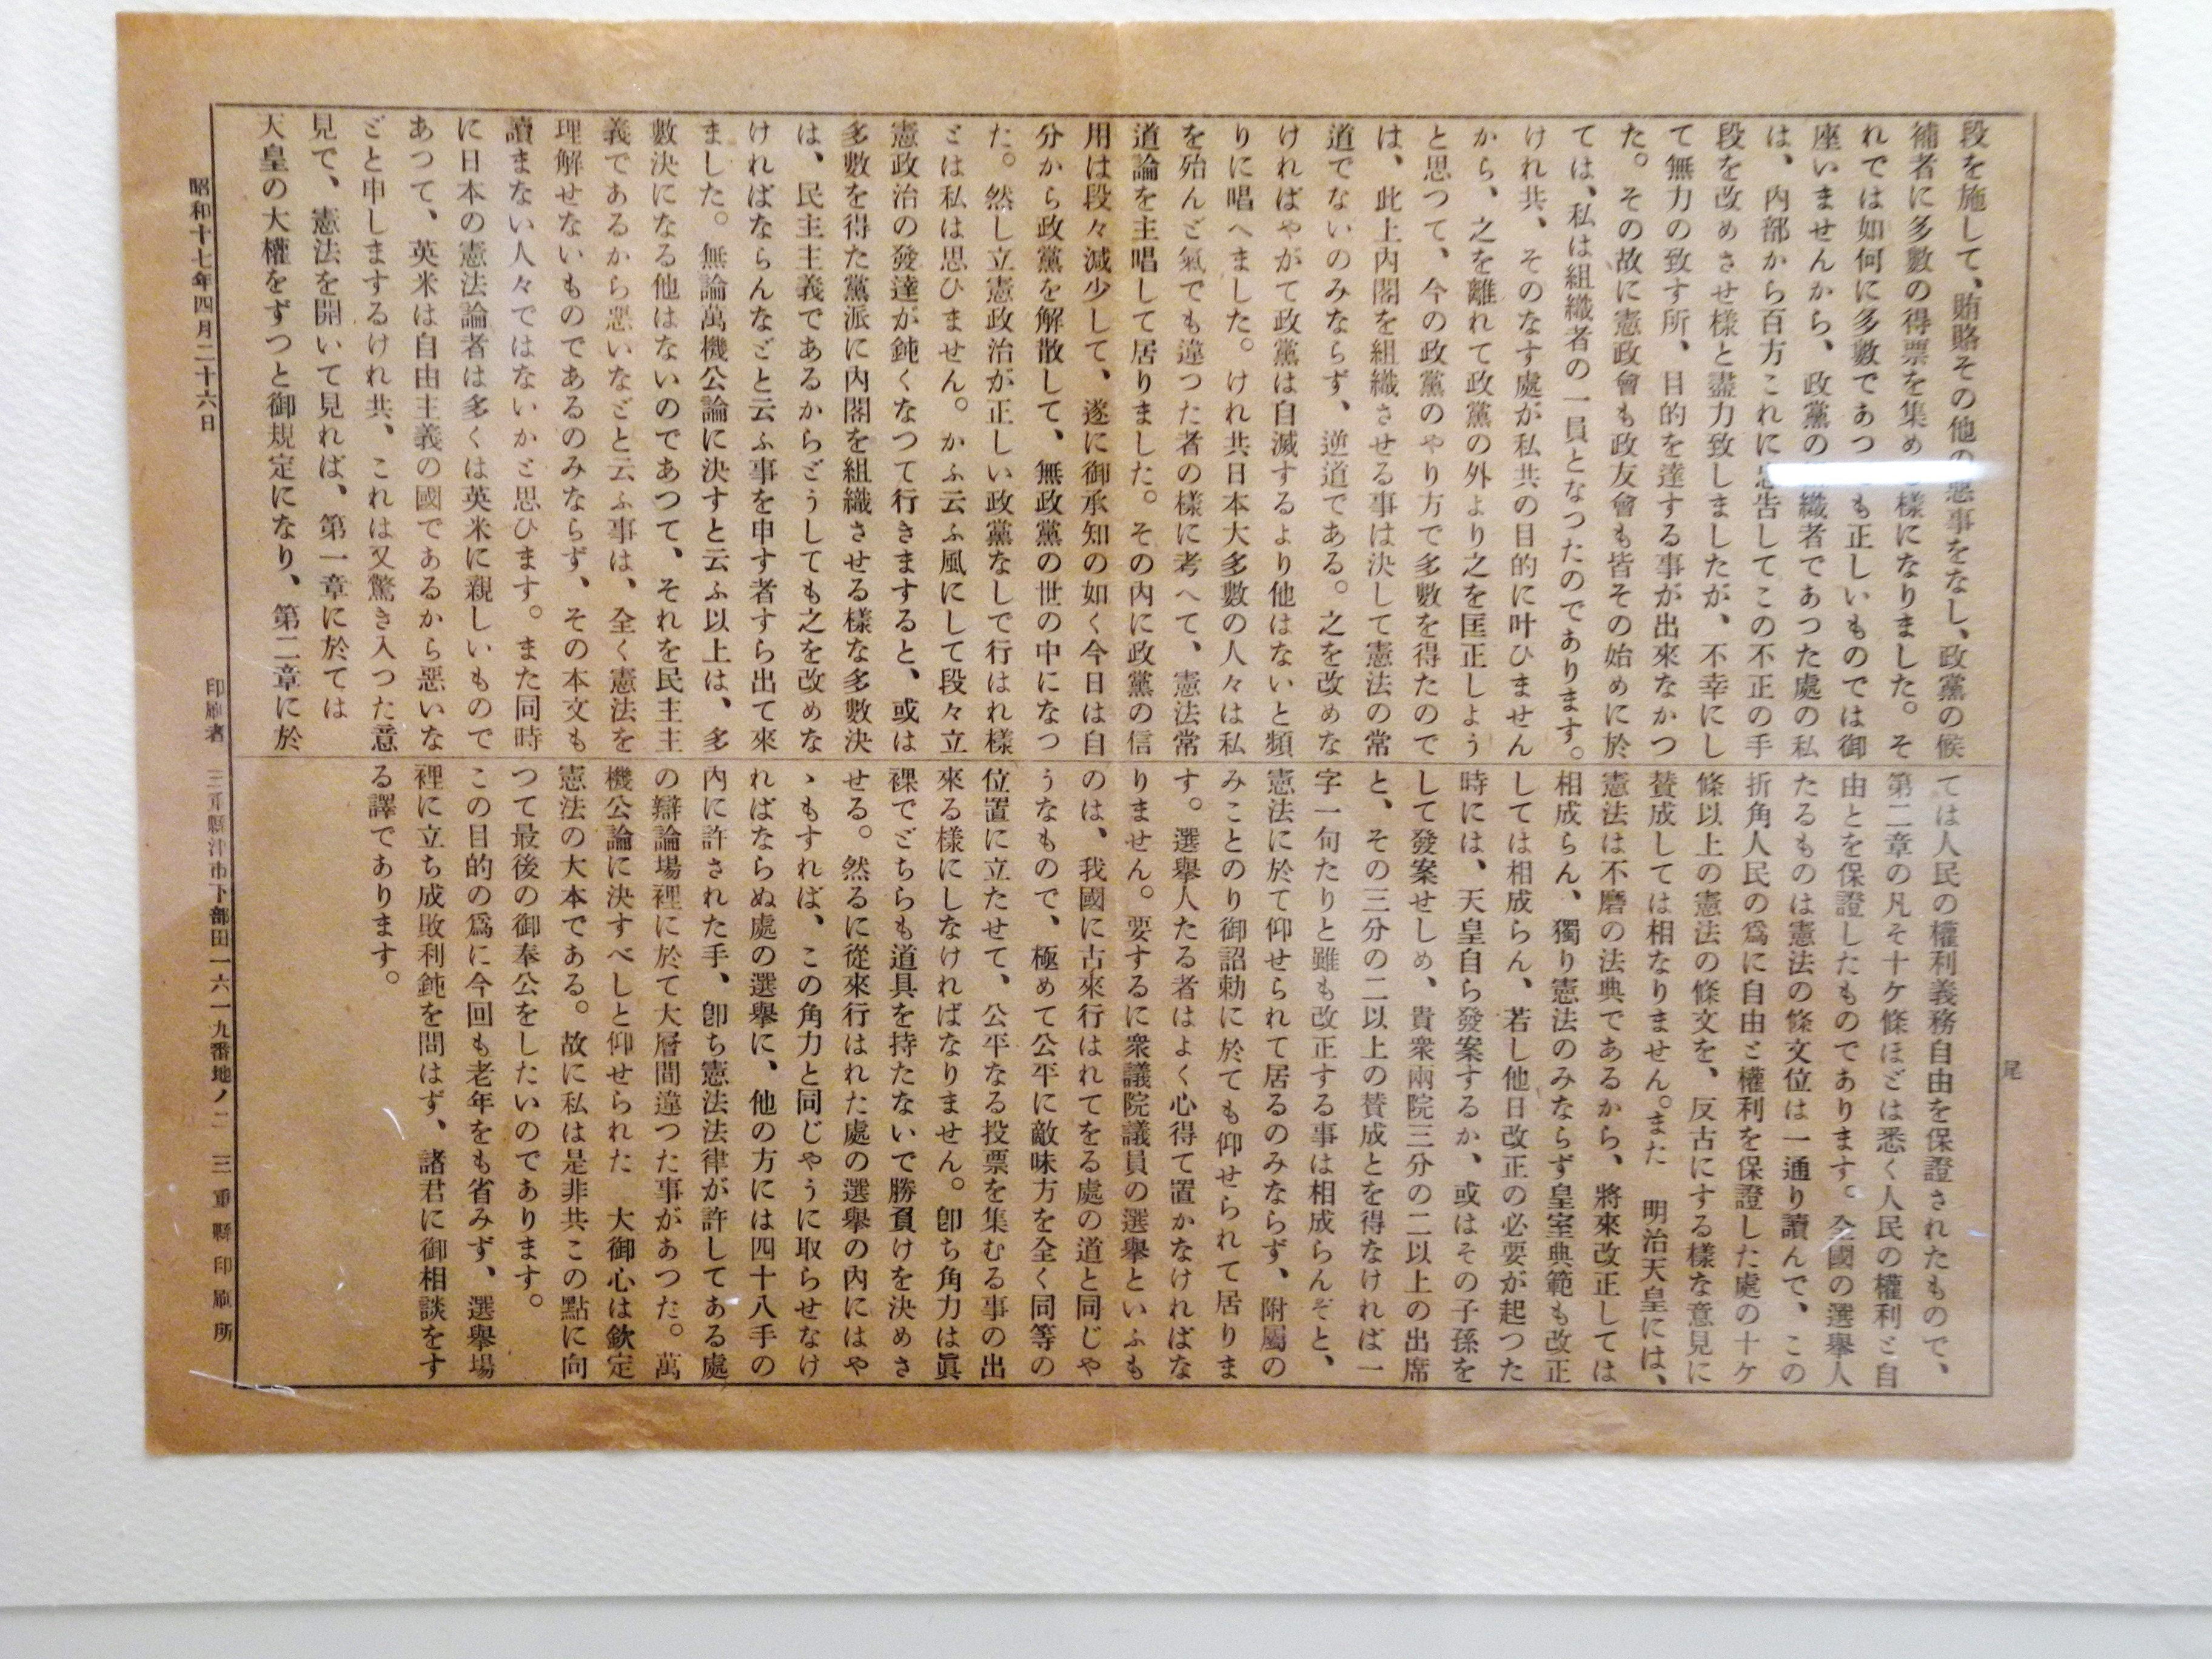 段を施して、賄賂その他の悪事をなし、政黨の候
補者に多數の得票を集め樣になりました。そ
れでは如何に多數であつも正しいものでは御
座いませんから、政黨の織者であつた處の私
は、內部から百方これに忠告してこの不正の手
段を改めさせ樣と盡力致しましたが、不幸にし
て無力の致す所、目的を達する事が出來なかつ
た。その故に憲政會も政友會も皆その始めに於
ては、私は組織者の一員となつたのであります。
けれ共、そのなす處が私共の目的に叶ひません
から、之を離れて政黨の外より之を匡正しよう
と思つて、今の政黨のやり方で多數を得たので
は、此上內閣を組織させる事は決して憲法の常
道でないのみならず、逆道である。之を改めな
ければやがて政黨は自滅するより他はないと頻
りに唱へました。けれ共日本大多數の人々は私
を殆んど氣でも違つた者の樣に考へて、憲法常
道論を主唱して居りました。その內に政黨の信
用は段々減少して、遂に御承知の如く今日は自
分から政黨を解散して、無政黨の世の中になつ
た。然し立憲政治が正しい政黨なしで行はれ樣
とは私は思ひません。かふ云ふ風にして段々立
憲政治の發達が鈍くなつて行きますると、或は
多數を得た黨派に內閣を組織させる樣な多數決
は、民主主義であるからどうしても之を改めな
ければならんなどと云ふ事を申す者すら出て來
ました。無論萬機公論に決すと云ふ以上は、多
數決になる他はないのであつて、それを民主主
義であるから悪いなどと云ふ事は、全く憲法を
理解せないものであるのみならず、その本文も
讀まない人々ではないかと思ひます。また同時
に日本の憲法論者は多くは英米に親しいもので
あつて、英米は自由主義の國であるから惡いな
どと申しまするけれ共、これは又驚き入つた意
見で、憲法を開いて見れば、第一章に於ては
天皇の大權をずつと御規定になり、第二章に於
ては人民の權利義務自由を保證されたもので、
第二章の凡そ十ケ條ほどは悉く人民の權利と自
由とを保證したものであります。全國の選擧人
たるものは憲法の條文位は一通り讀んで、この
折角人民の爲に自由と權利を保證した處の十ケ
條以上の憲法の條文を、反古にする樣な意見に
賛成しては相なりません。また　明治天皇には、
憲法は不磨の法典であるから、將來改正しては
相成らん、獨り憲法のみならず皇室典範も改正
しては相成らん、若し他日改正の必要が起つた
時には、天皇自ら發案するか、或はその子孫を
して發案せしめ、貴衆兩院三分の二以上の出席
と、その三分の二以上の賛成とを得なければ一
字一句たりと雖も改正する事は相成らんぞと、
憲法に於て仰せられて居るのみならず、附屬の
みことのり御詔勅に於ても仰せられて居りま
す。選擧人たる者はよく心得て置かなければな
りません。要するに衆議院議員の選擧といふも
のは、我國に古來行はれてをる處の道と同じや
うなもので、極めて公平に敵味方を全く同等の
位置に立たせて、公平なる投票を集むる事の出
來る樣にしなければなりません。卽ち角力は眞
裸でどちらも道具を持たないで勝負けを決めさ
せる。然るに從來行はれた處の選擧の內にはや
ゝもすれば、この角力と同じやうに取らせなけ
ればならぬ處の選擧に、他の方には四十八手の
內に許された手、卽ち憲法法律が許してある處
の辯論場裡に於て大層間違つた事があつた。萬
機公論に決すべしと仰せられた　大御心は欽定
憲法の大本である。故に私は是非共この點に向
つて最後の御奉公をしたいのであります。
この目的の爲に今回も老年をも省みず、選擧場
裡に立ち成敗利鈍を問はず、諸君に御相談をす
る譯であります。
尾
昭和十七年四月二十六日
印刷者　三重縣津市下部田一六一九番地ノ二　三重縣印刷所